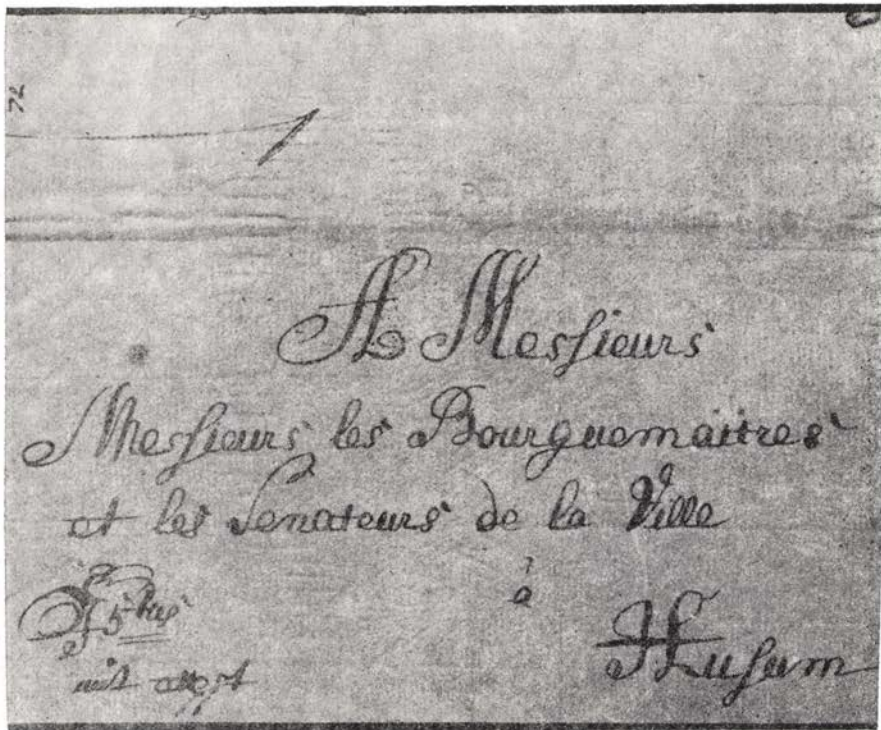 72
A Messieurs
Messieurs les Bourguemaitres
et les Senateurs de la Ville
à
Husum
mit attest